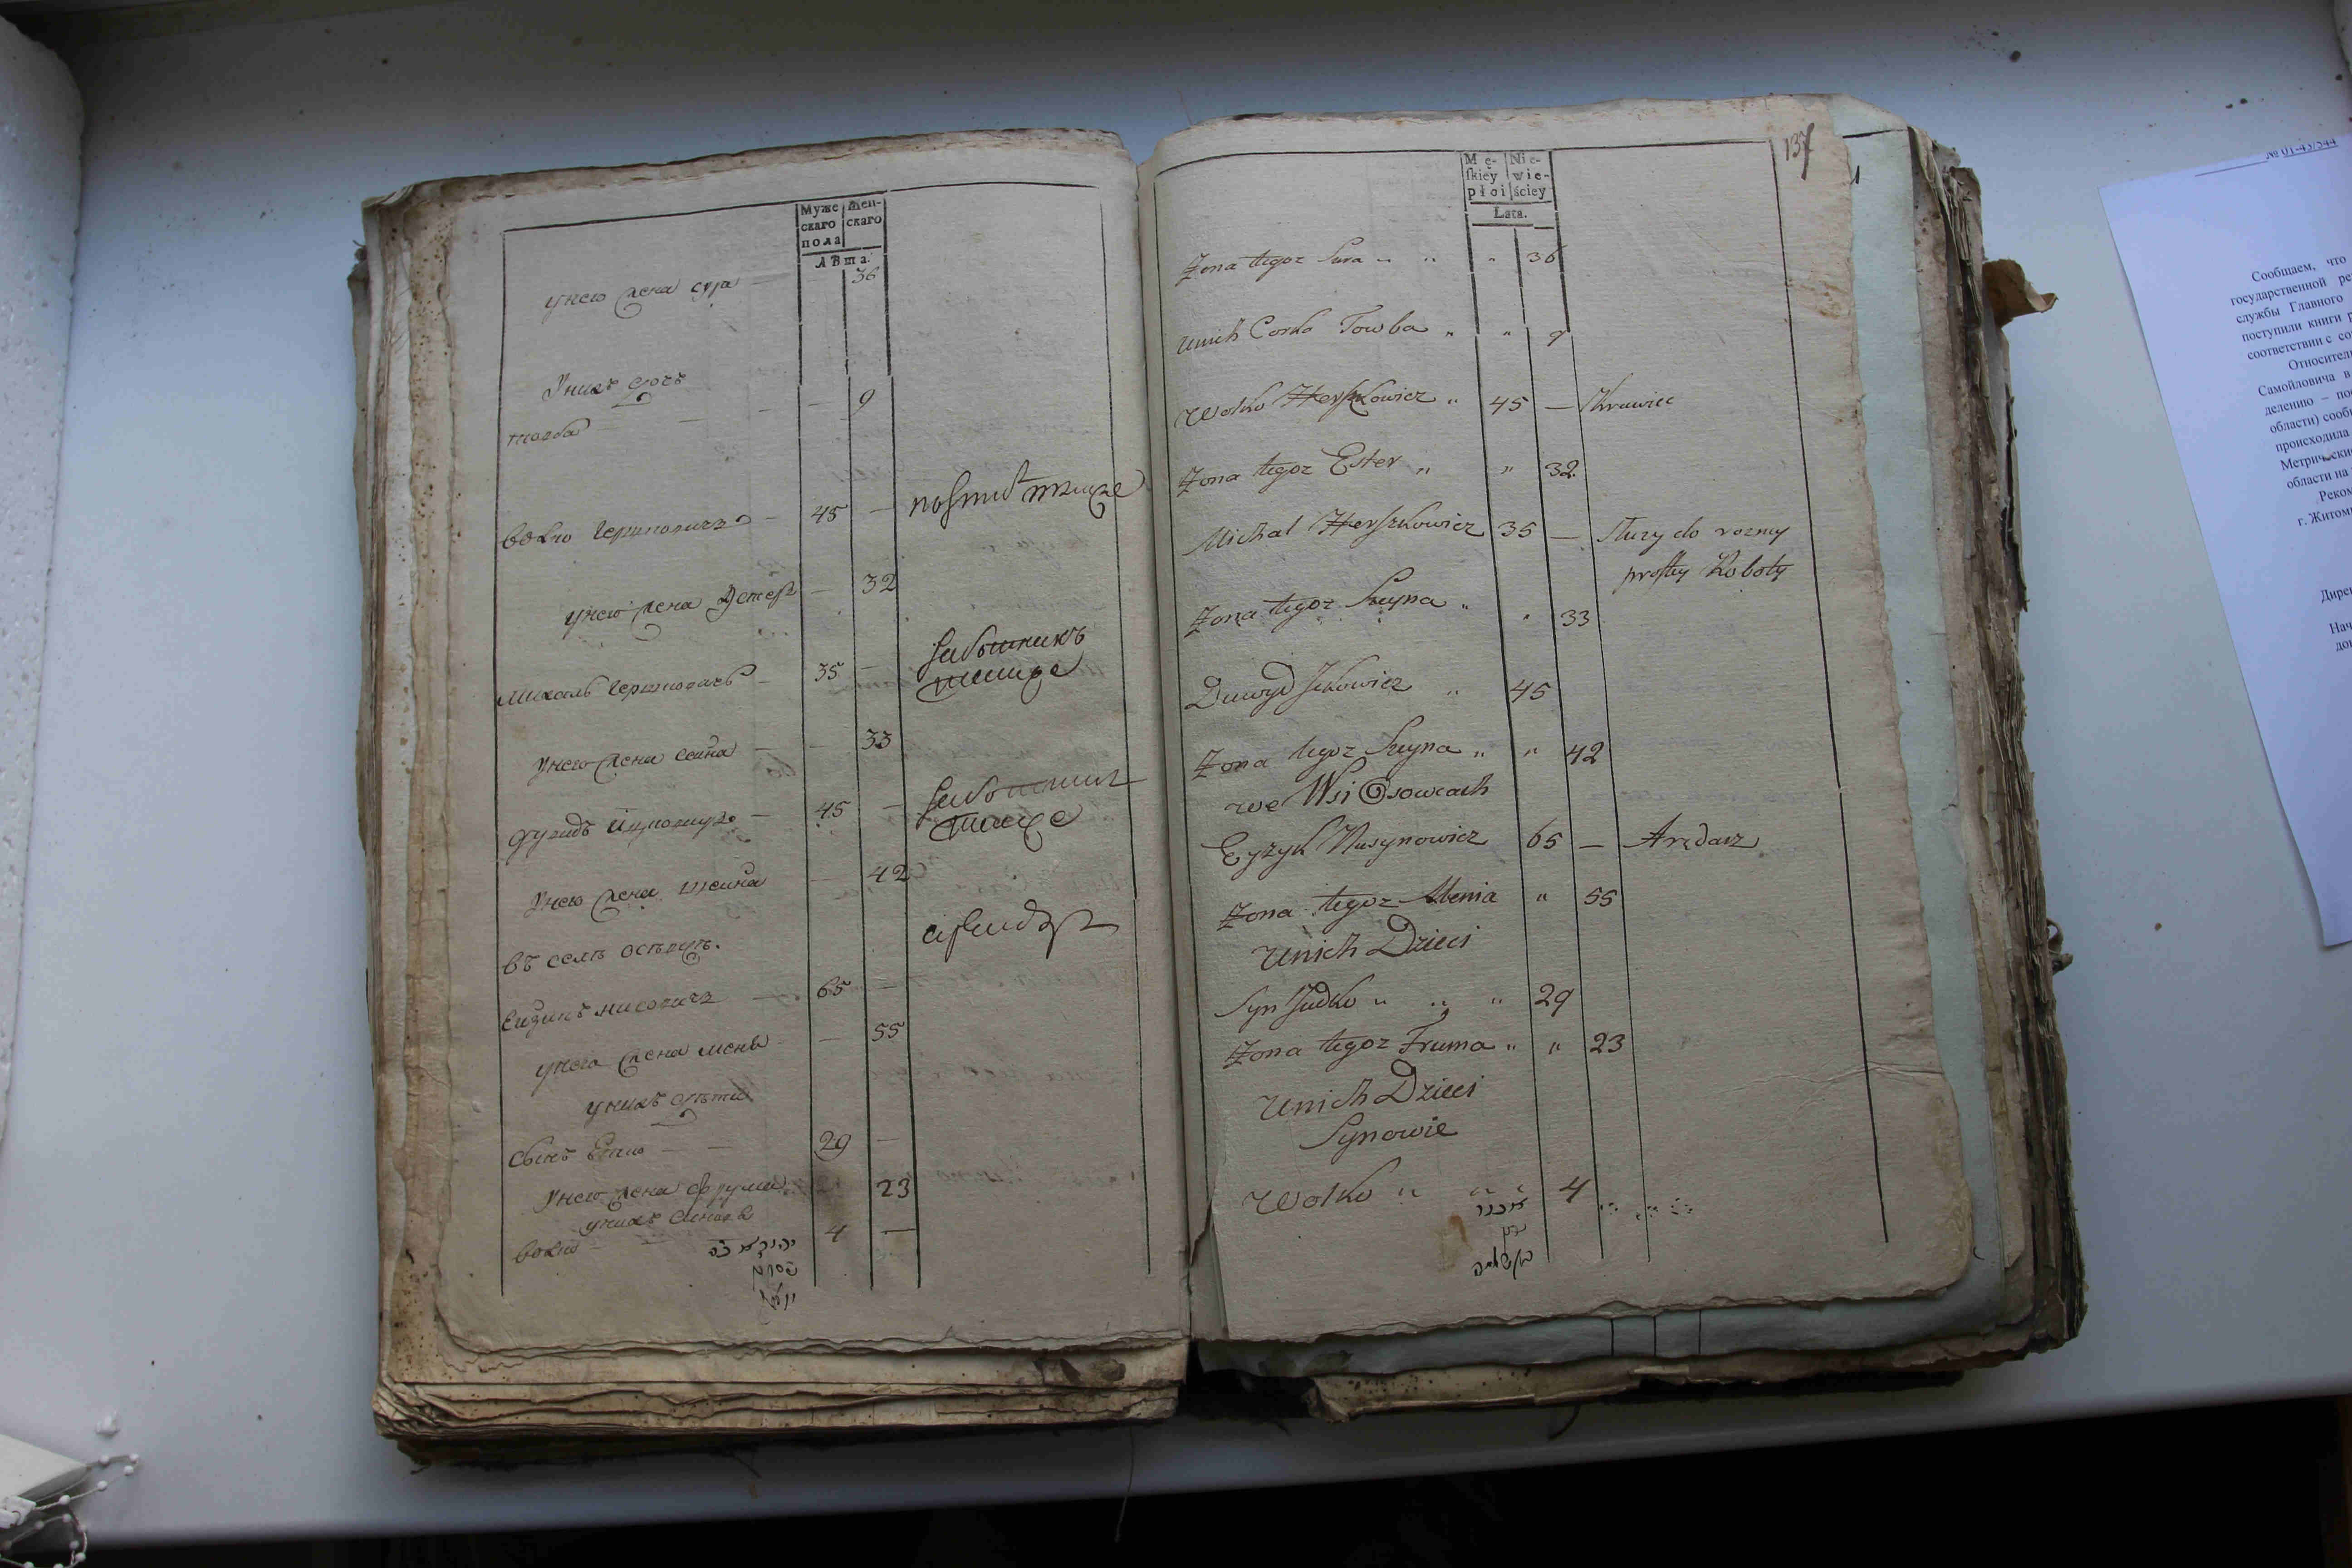 Муже
скаго
пола
Жен-
скаго
Лѣта.
у него жена сура — — 36
У нихъ дочь
товба — — — 9
волко Гершковичъ — 45 —
у него жена Эстеръ — 32
михаль Гершковичъ — 35 —
работникъ
у него жена сейна — — 33
дувидъ ицковичъ — 45 —
У него жена шейна — 42
въ селѣ осовцахъ.
арендарь
65 —
у него жена меня — 55
у нихъ дѣти
Сынъ — — 29 —
У него жена фрума 23
у нихъ синовя
волко — 4 —
137
Mę-
skiey
płci
Nie-
wie-
ściey
Lata.
Żona tegoz Sura „ „ „ 36
unich Corka Towba „ „ 9
Wolko Herszkowicz „ 45 — Krawiec
Żona tegoz Ester „ „ 32
Michal Herszkowicz 35 — Służy do rozney
prostey Roboty
Żona tegoz Szeyna „ „ 33
Duwyd Ickowicz „ 45
Żona tegoz Szeyna „ „ 42
we Wsi Osowcach
Eyzyk Nusynowicz 65 — Arędarz
Żona tegoz Menia „ 55
Unich Dzieci
Syn Judko „ „ „ 29
Żona tegoz Fruma „ „ 23
Unich Dzieci
Synowie
Wolko „ „ 4
№ 01-43/544
Сообщаем, что
государственной ре
службы Главного
поступили книги р
соответствии с со
Относител
Самойловича в
делению – по
области) сооб
происходила
Метрически
области на
Реком
г. Житом
Дирек
Нач
док